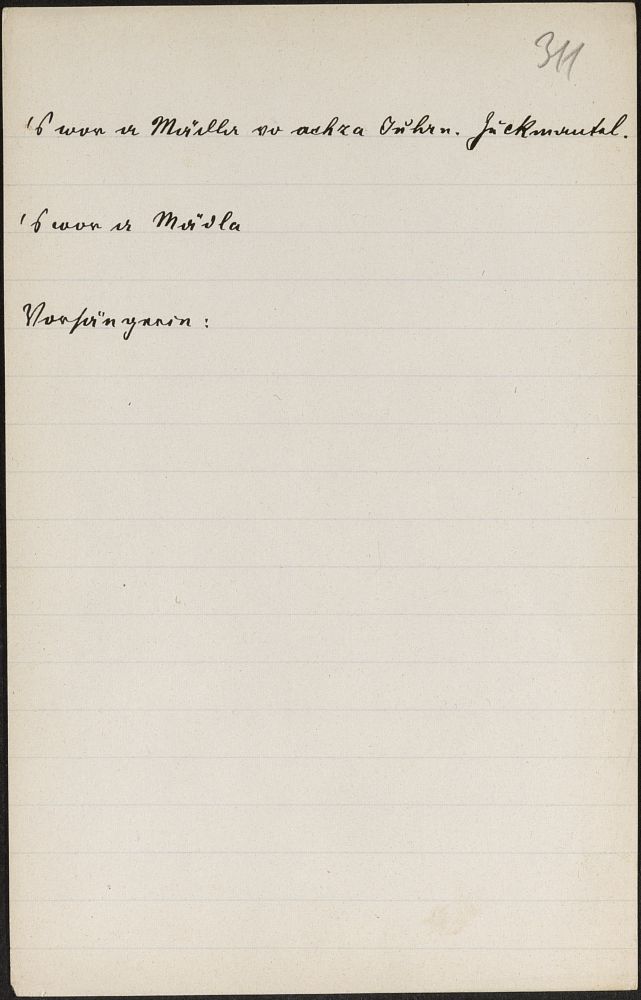 311
's wor a Mädla vo achza Juhrn. Zuckmantel.
's wor a Mädla
Vorsängerin: